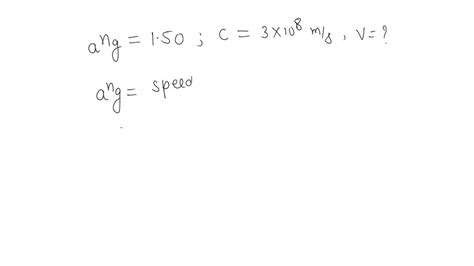 aⁿg = 1.50 ; C = 3×10⁸ m/s , V = ?
aⁿg = speed